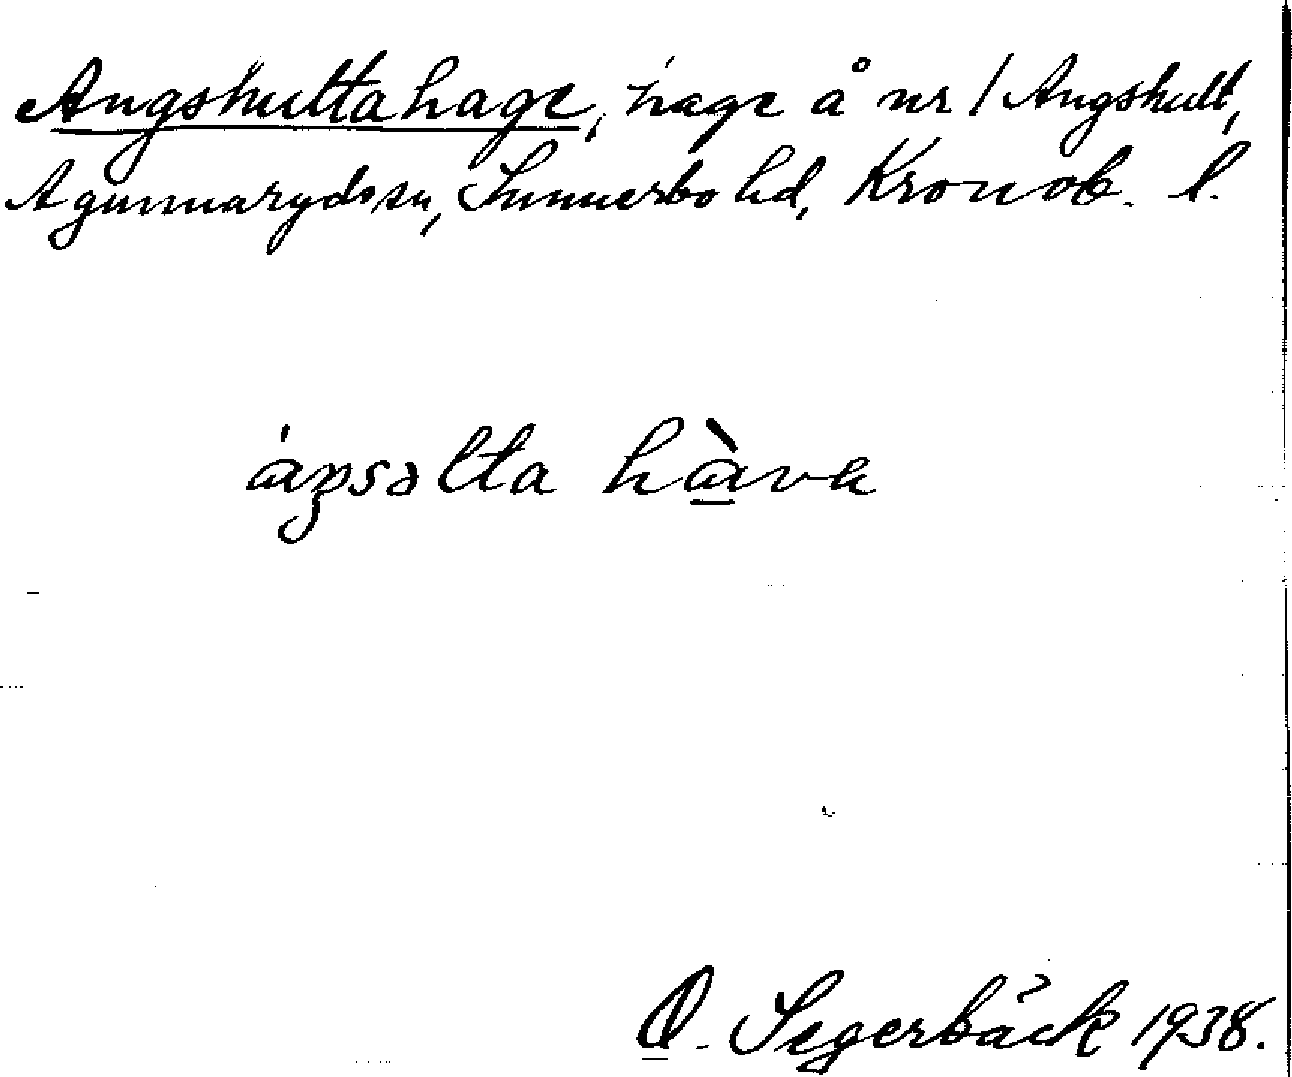 Angshultahage, hage å nr 1 Angshult,
Agunnarydssn, Sunnerbo hd, Kronob. l.
áŋsəlta hàva
O. Segerbäck 1938.